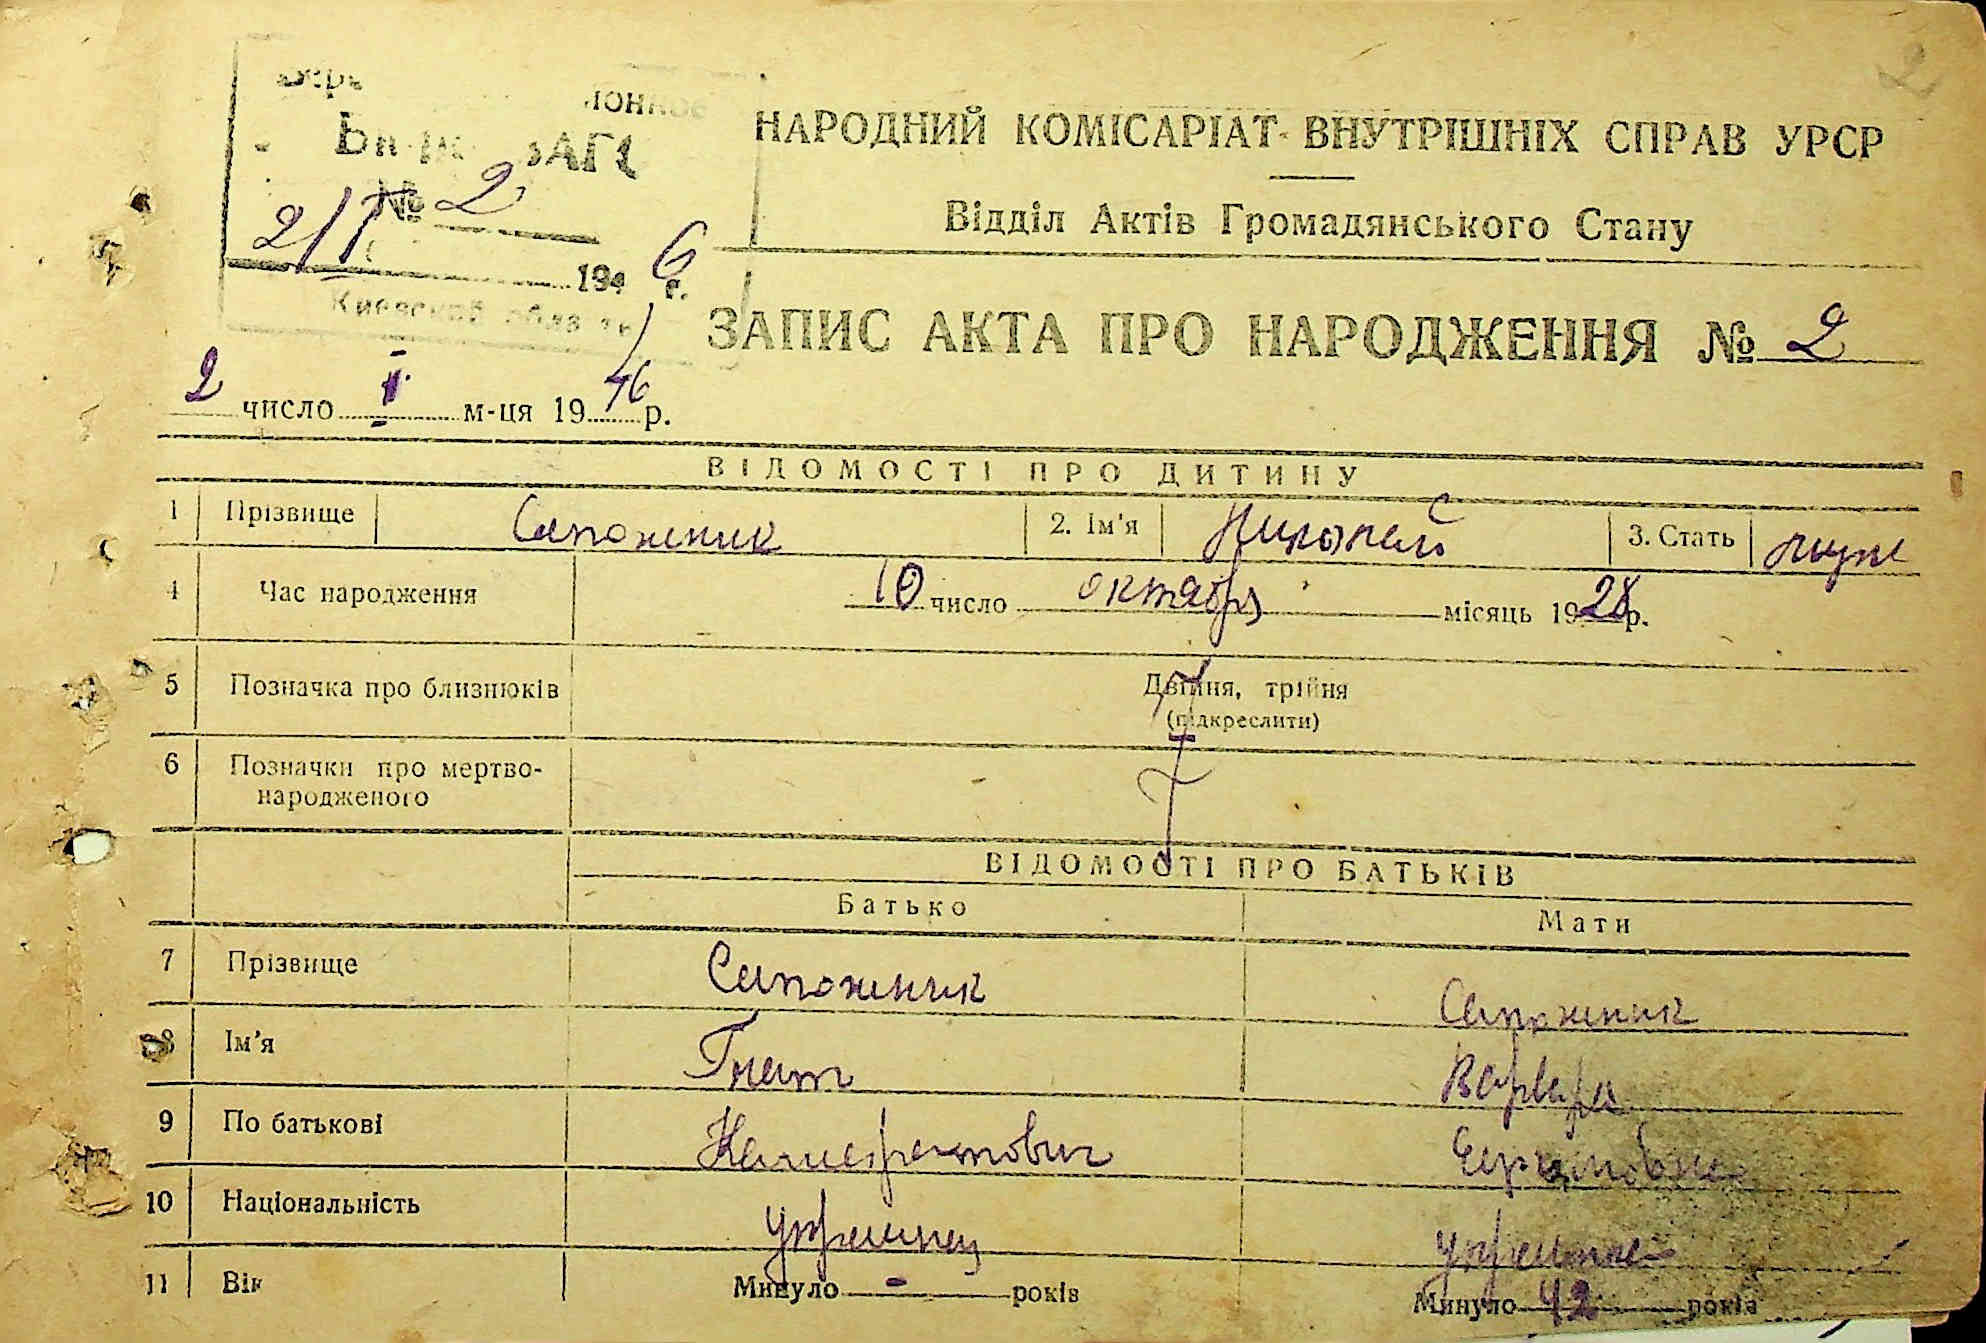 2
№ 2
2/I 1946 г.
Киевской
НАРОДНИЙ КОМІСАРІАТ ВНУТРІШНІХ СПРАВ УРСР
Відділ Актів Громадянського Стану
ЗАПИС АКТА ПРО НАРОДЖЕННЯ № 2
2 число I м-ця 1946 р.
ВІДОМОСТІ ПРО ДИТИНУ
1 Прізвище Сапожник 2. Ім'я Николай 3. Стать муж
4 Час народження 10 число октября місяць 1928 р.
5 Позначка про близнюків Двійня, трійня
(підкреслити)
6 Позначки про мертво-
народженого
ВІДОМОСТІ ПРО БАТЬКІВ
Батько Мати
7 Прізвище Сапожник Сапожник
8 Ім'я Гнат Варвара
9 По батькові
10 Національність украинец украинка
11 Вік Минуло - років Минуло 42 років